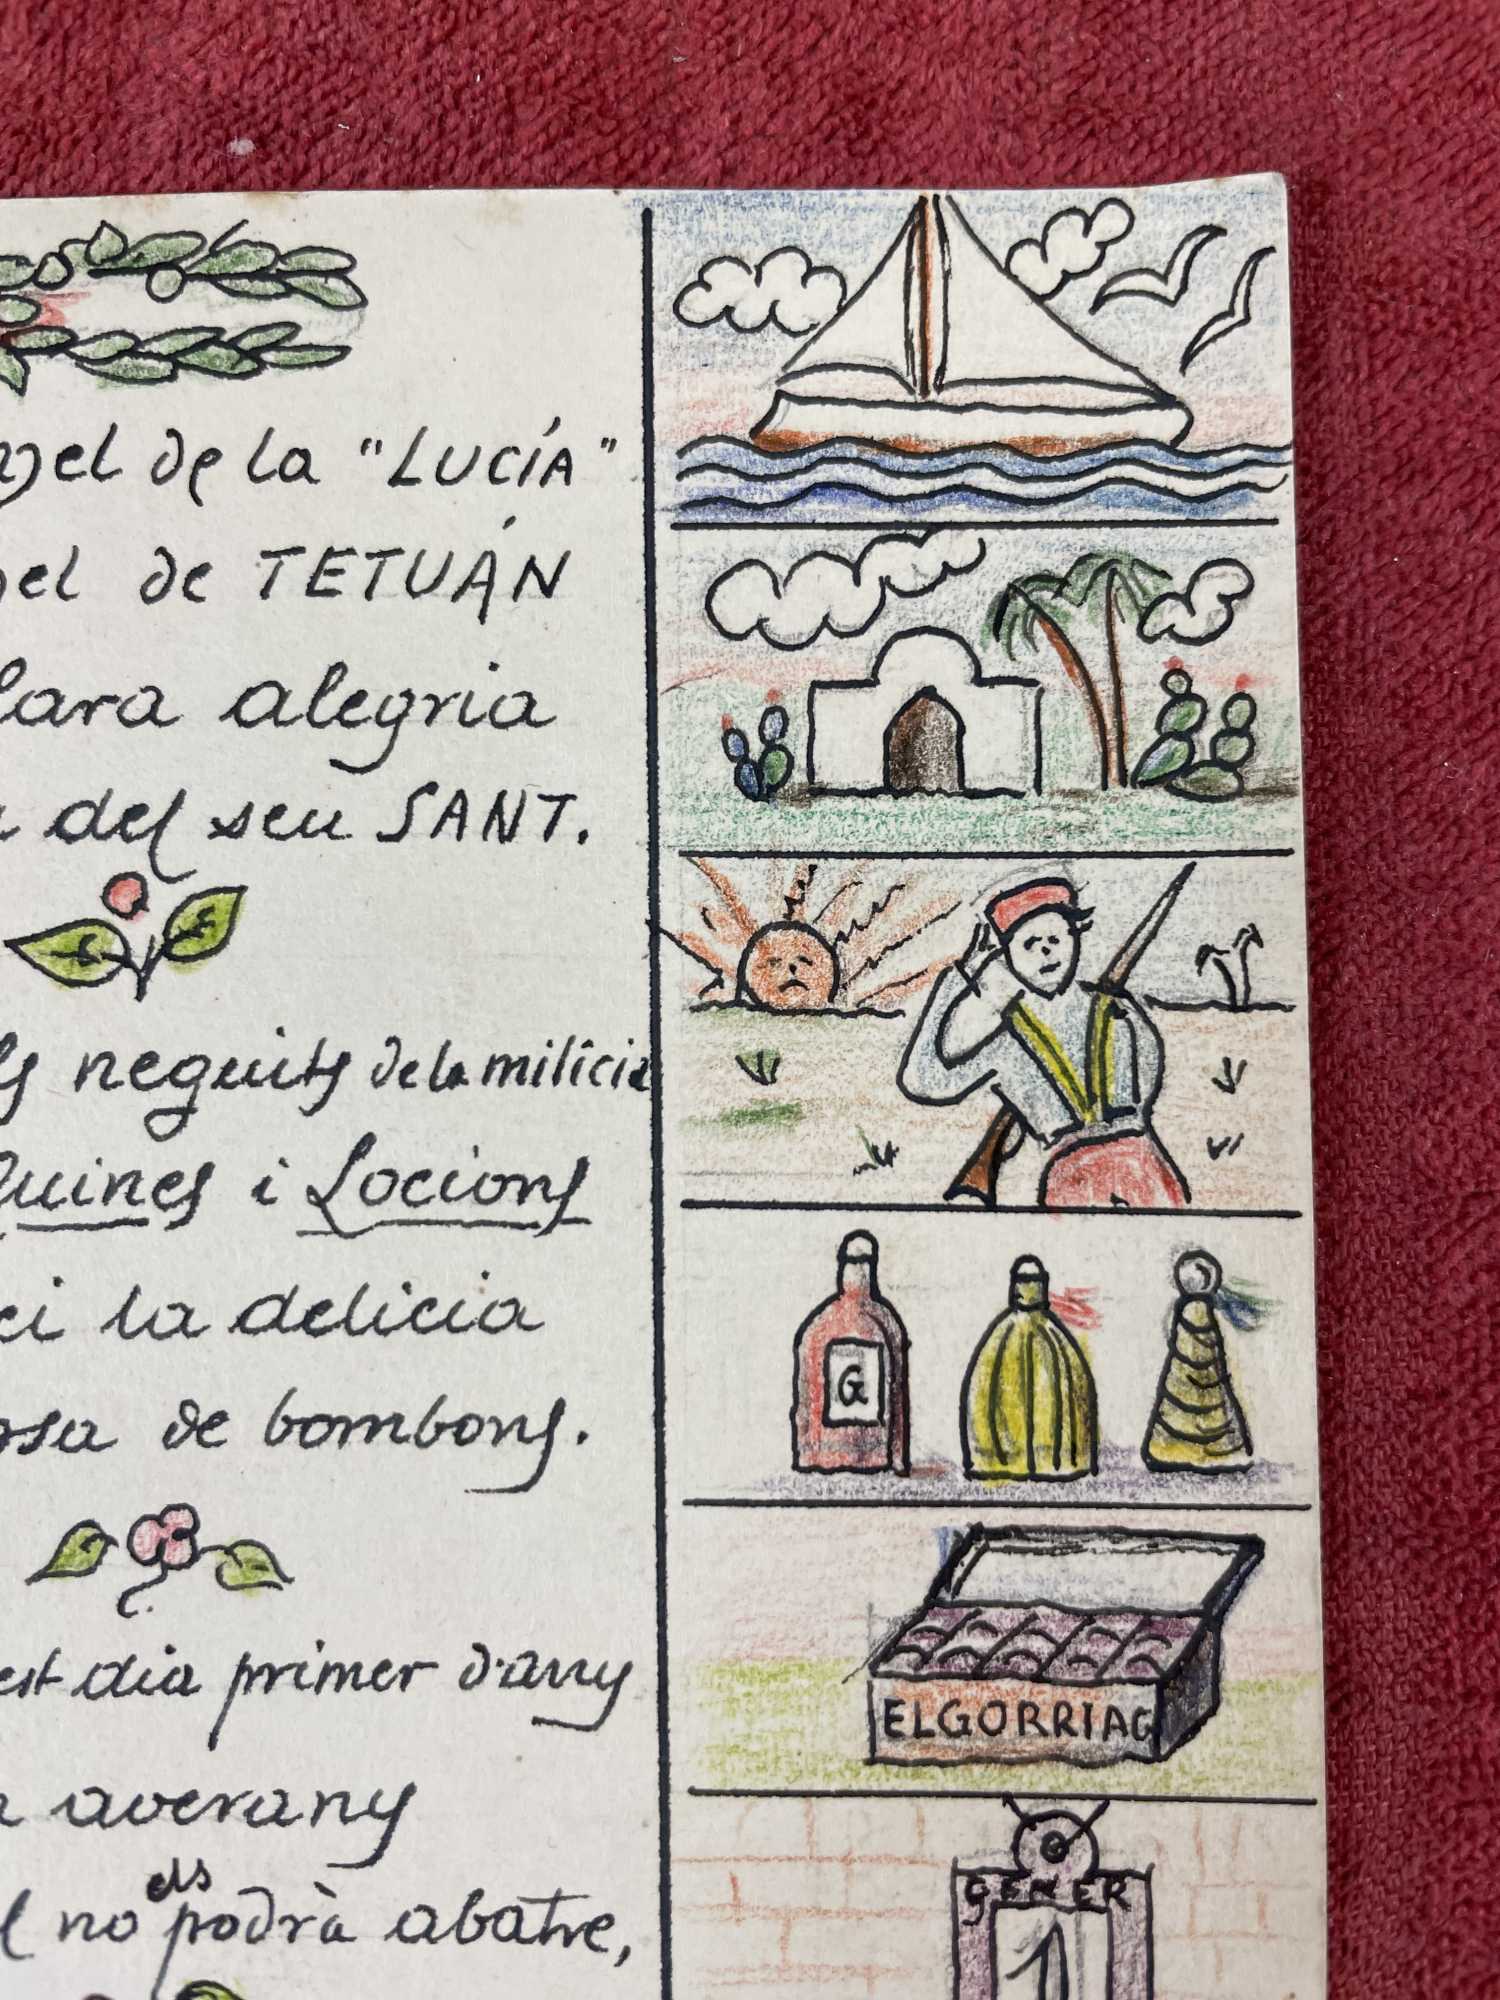 el de la "LUCÍA"
el de TETUÁN
alegria
del seu SANT.
neguits de la milicia
Quines i Locions
la delicia
de bombons.
dia primer d'any
averany
els
no podrà abatre,
G
ELGORRIAG
GENER
1